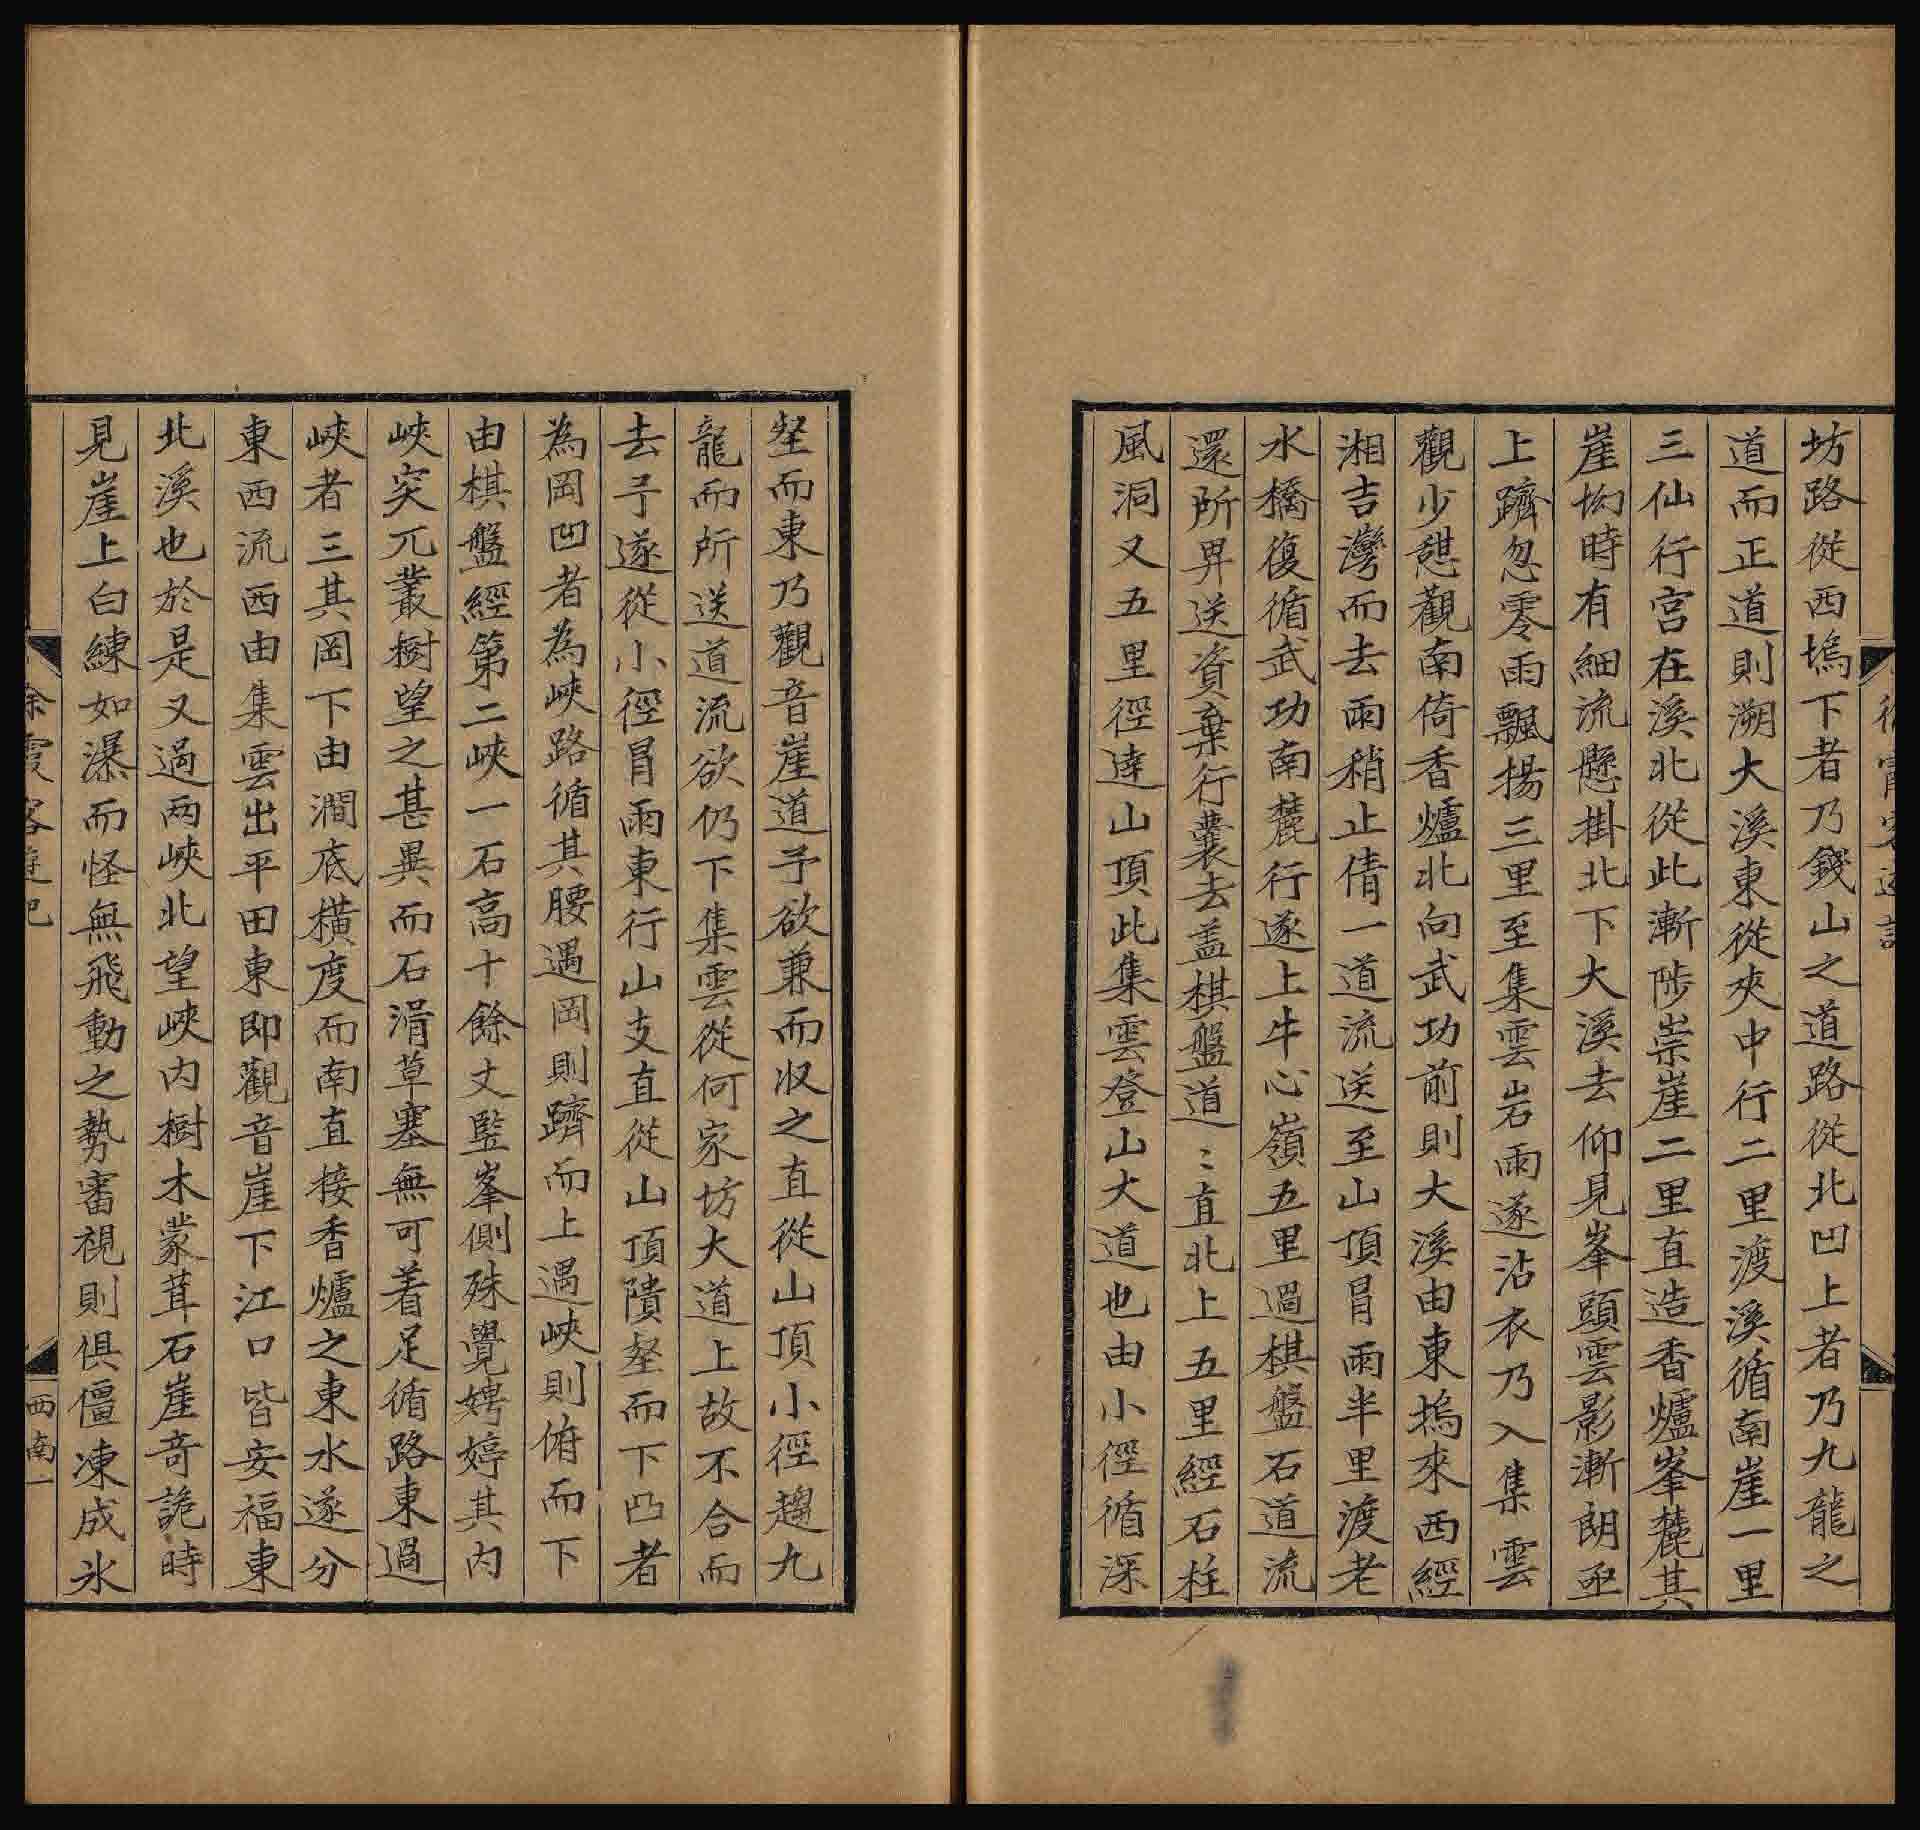 徐霞客遊記
坊路從西塢下者乃錢山之道路從北凹上者乃九龍之
道而正道則溯大溪東從夾中行二里渡溪循南崖一里
三仙行宫在溪北從此漸陟崇崖二里直造香爐峯麓其
崖坳時有細流懸掛北下大溪去仰見峯頭雲影漸朗亟
上躋忽零雨飄揚三里至集雲岩雨遂沾衣乃入集雲
觀少憇觀南倚香爐北向武功前則大溪由東塢來西經
湘吉灣而去雨稍止倩一道流送至山頂冒雨半里渡老
水橋復循武功南麓行遂上牛心嶺五里過棋盤石道流
還所畀送資棄行囊去盖棋盤道〻直北上五里經石柱
風洞又五里徑達山頂此集雲登山大道也由小徑循深
壑而東乃觀音崖道予欲兼而収之直從山頂小徑趨九
龍而所送道流欲仍下集雲從何家坊大道上故不合而
去予遂從小徑冒雨東行山支直從山頂隤壑而下凸者
為岡凹者為峽路循其腰遇岡則躋而上遇峽則俯而下
由棋盤經第二峽一石高十餘丈竪峯側殊覺娉婷其内
峽突兀叢樹望之甚異而石滑草塞無可着足循路東過
峽者三其岡下由澗底橫度而南直接香爐之東水遂分
東西流西由集雲出平田東即觀音崖下江口皆安福東
北溪也於是又過两峽北望峽内樹木蒙茸石崖奇詭時
見崖上白練如瀑而怪無飛動之勢審視則俱僵凍成氷
徐霞客遊記
西南一